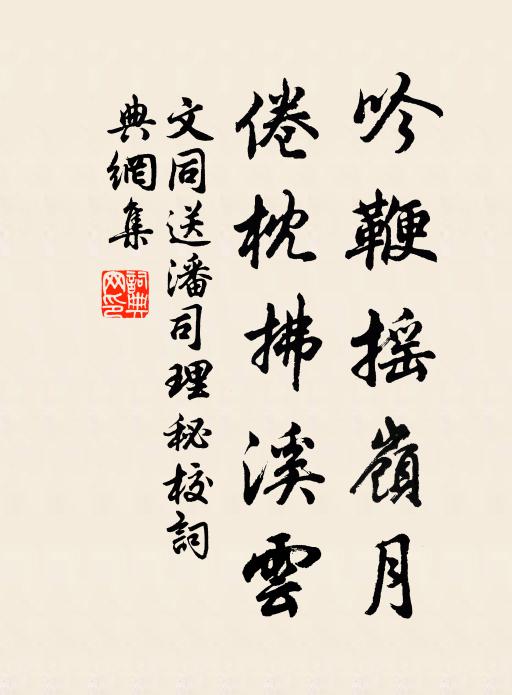 吟鞭搖嶺月
倦枕拂溪雲
文同送潘司理秘校詞
典網集
詞典網印